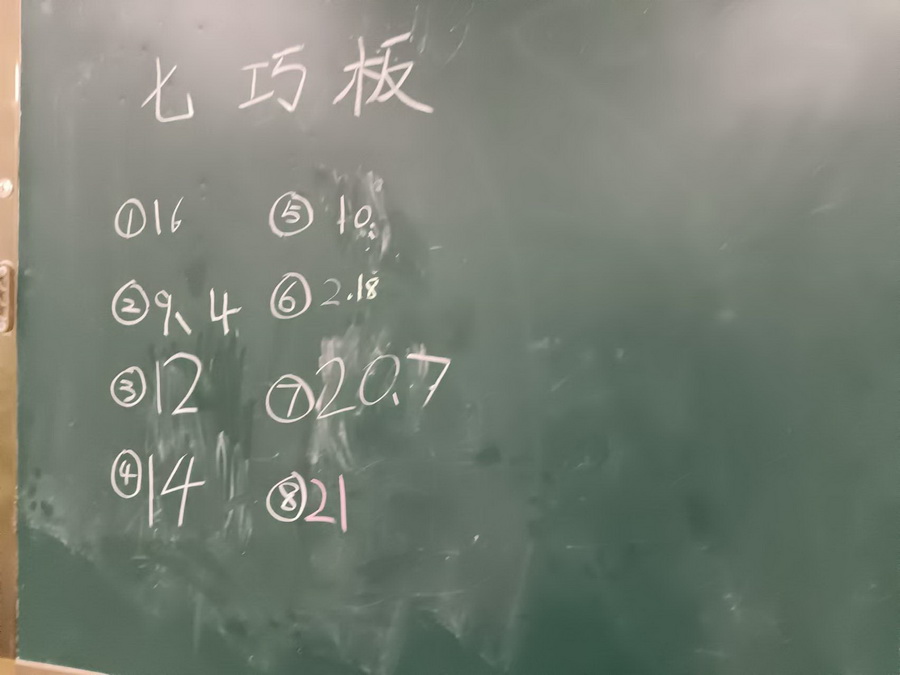 七巧板
①16 ⑤ 10
②9、4 ⑥2.18
③12 ⑦20、7
④14 ⑧21